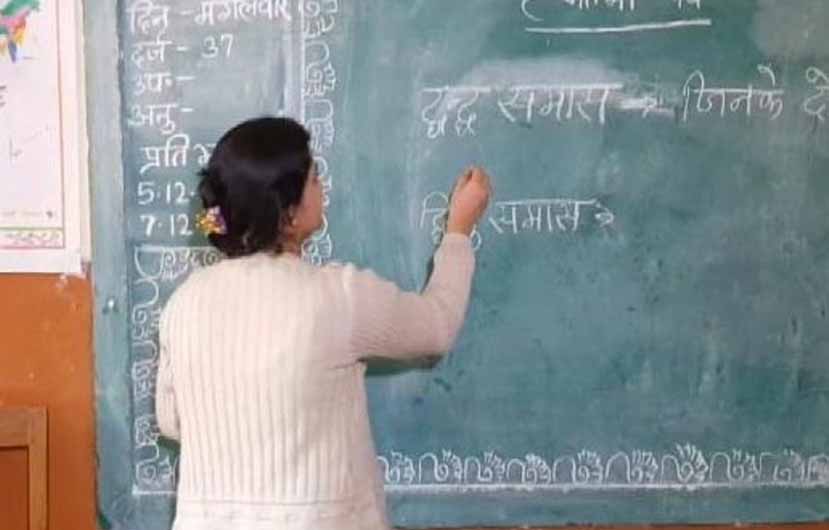 दिन - मंगलवार
दर्ज - 37
उप -
अनु -
प्रति
5.12.
7.12
द्वन्द्व समास → जिनके
द्विगु समास →